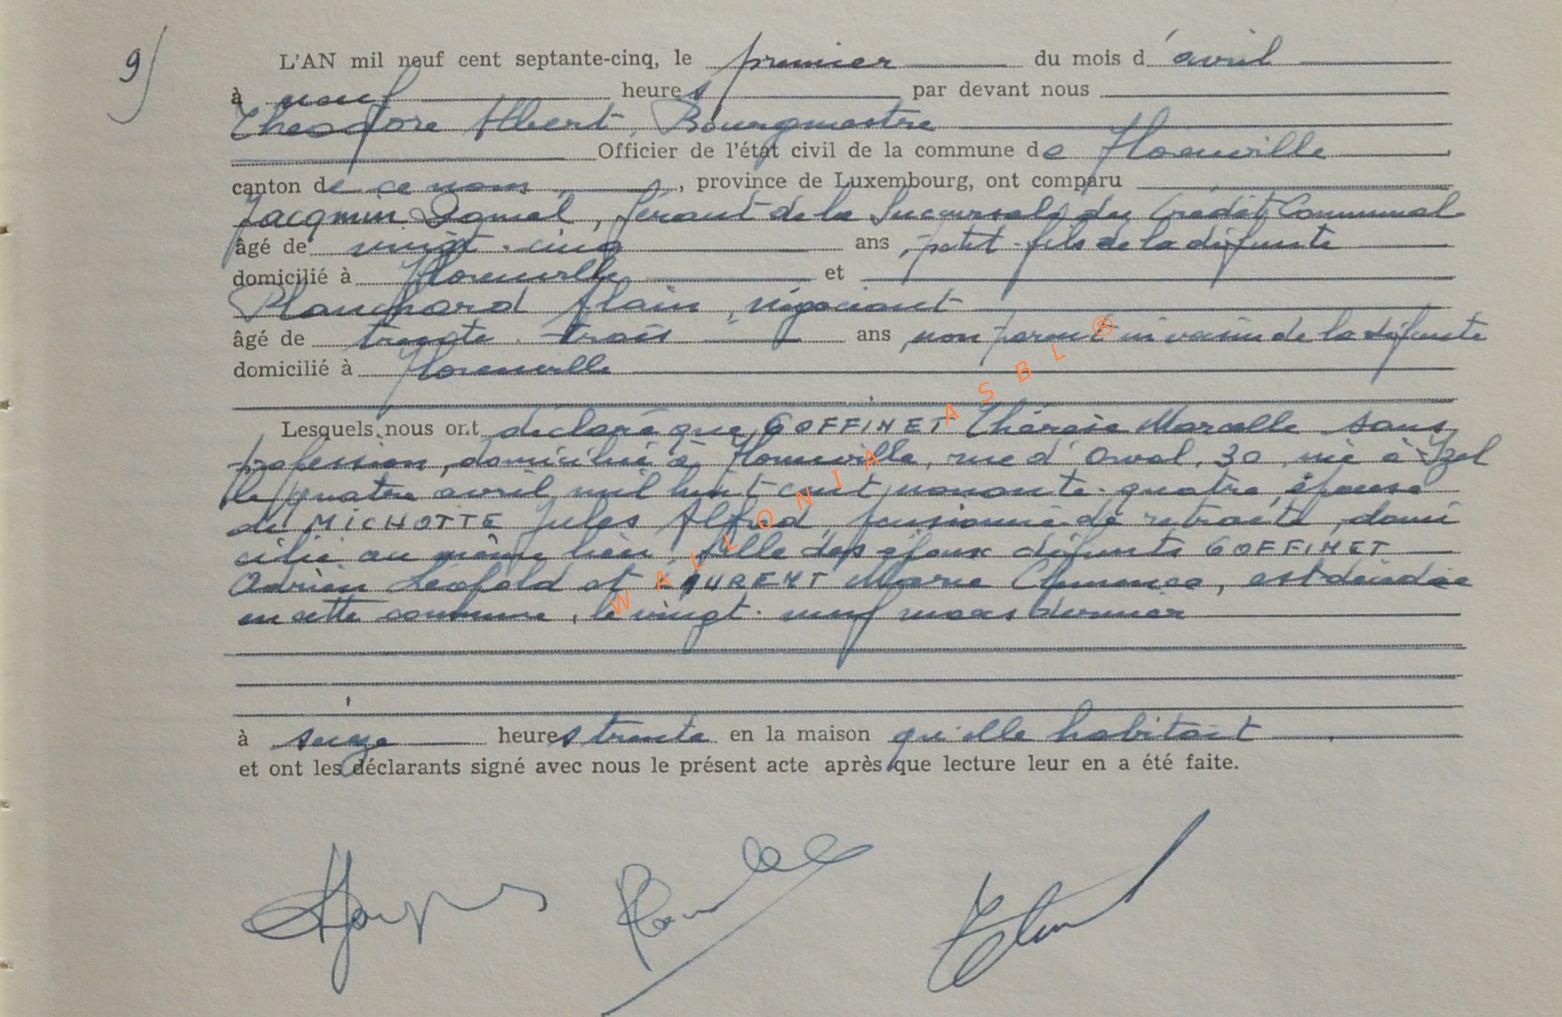 9)
L'AN mil neuf cent septante-cinq, le premier du mois d'avril
à neuf heures par devant nous
Théodore Albert, Bourgmestre
Officier de l'état civil de la commune de Florenville
canton de ce nom, province de Luxembourg, ont comparu
Jacqmin Daniel, Gérant de la Succursale du Crédit Communal
âgé de vingt-cinq ans, petit-fils de la défunte
domicilié à Florenville et
Planchard Alain, négociant
âgé de trente-trois ans, non parent ni voisin de la défunte
domicilié à Florenville
Lesquels nous ont déclaré que GOFFINET Thérèse Marcelle sans
profession, domiciliée à Florenville, rue d'Orval, 30, née à Izel
le quatre avril mil huit cent nonante-quatre, épouse
de MICHOTTE Jules Alfred, pensionné de retraite, domi
cilié au même lieu, fille des époux défunts GOFFINET
Adrien Léopold et LAURENT Marie Clémence, est décédée
en cette commune, le vingt-neuf mars dernier
à seize heures trente en la maison qu'elle habitait
et ont les déclarants signé avec nous le présent acte après que lecture leur en a été faite.
WALLONIA ASBL ®